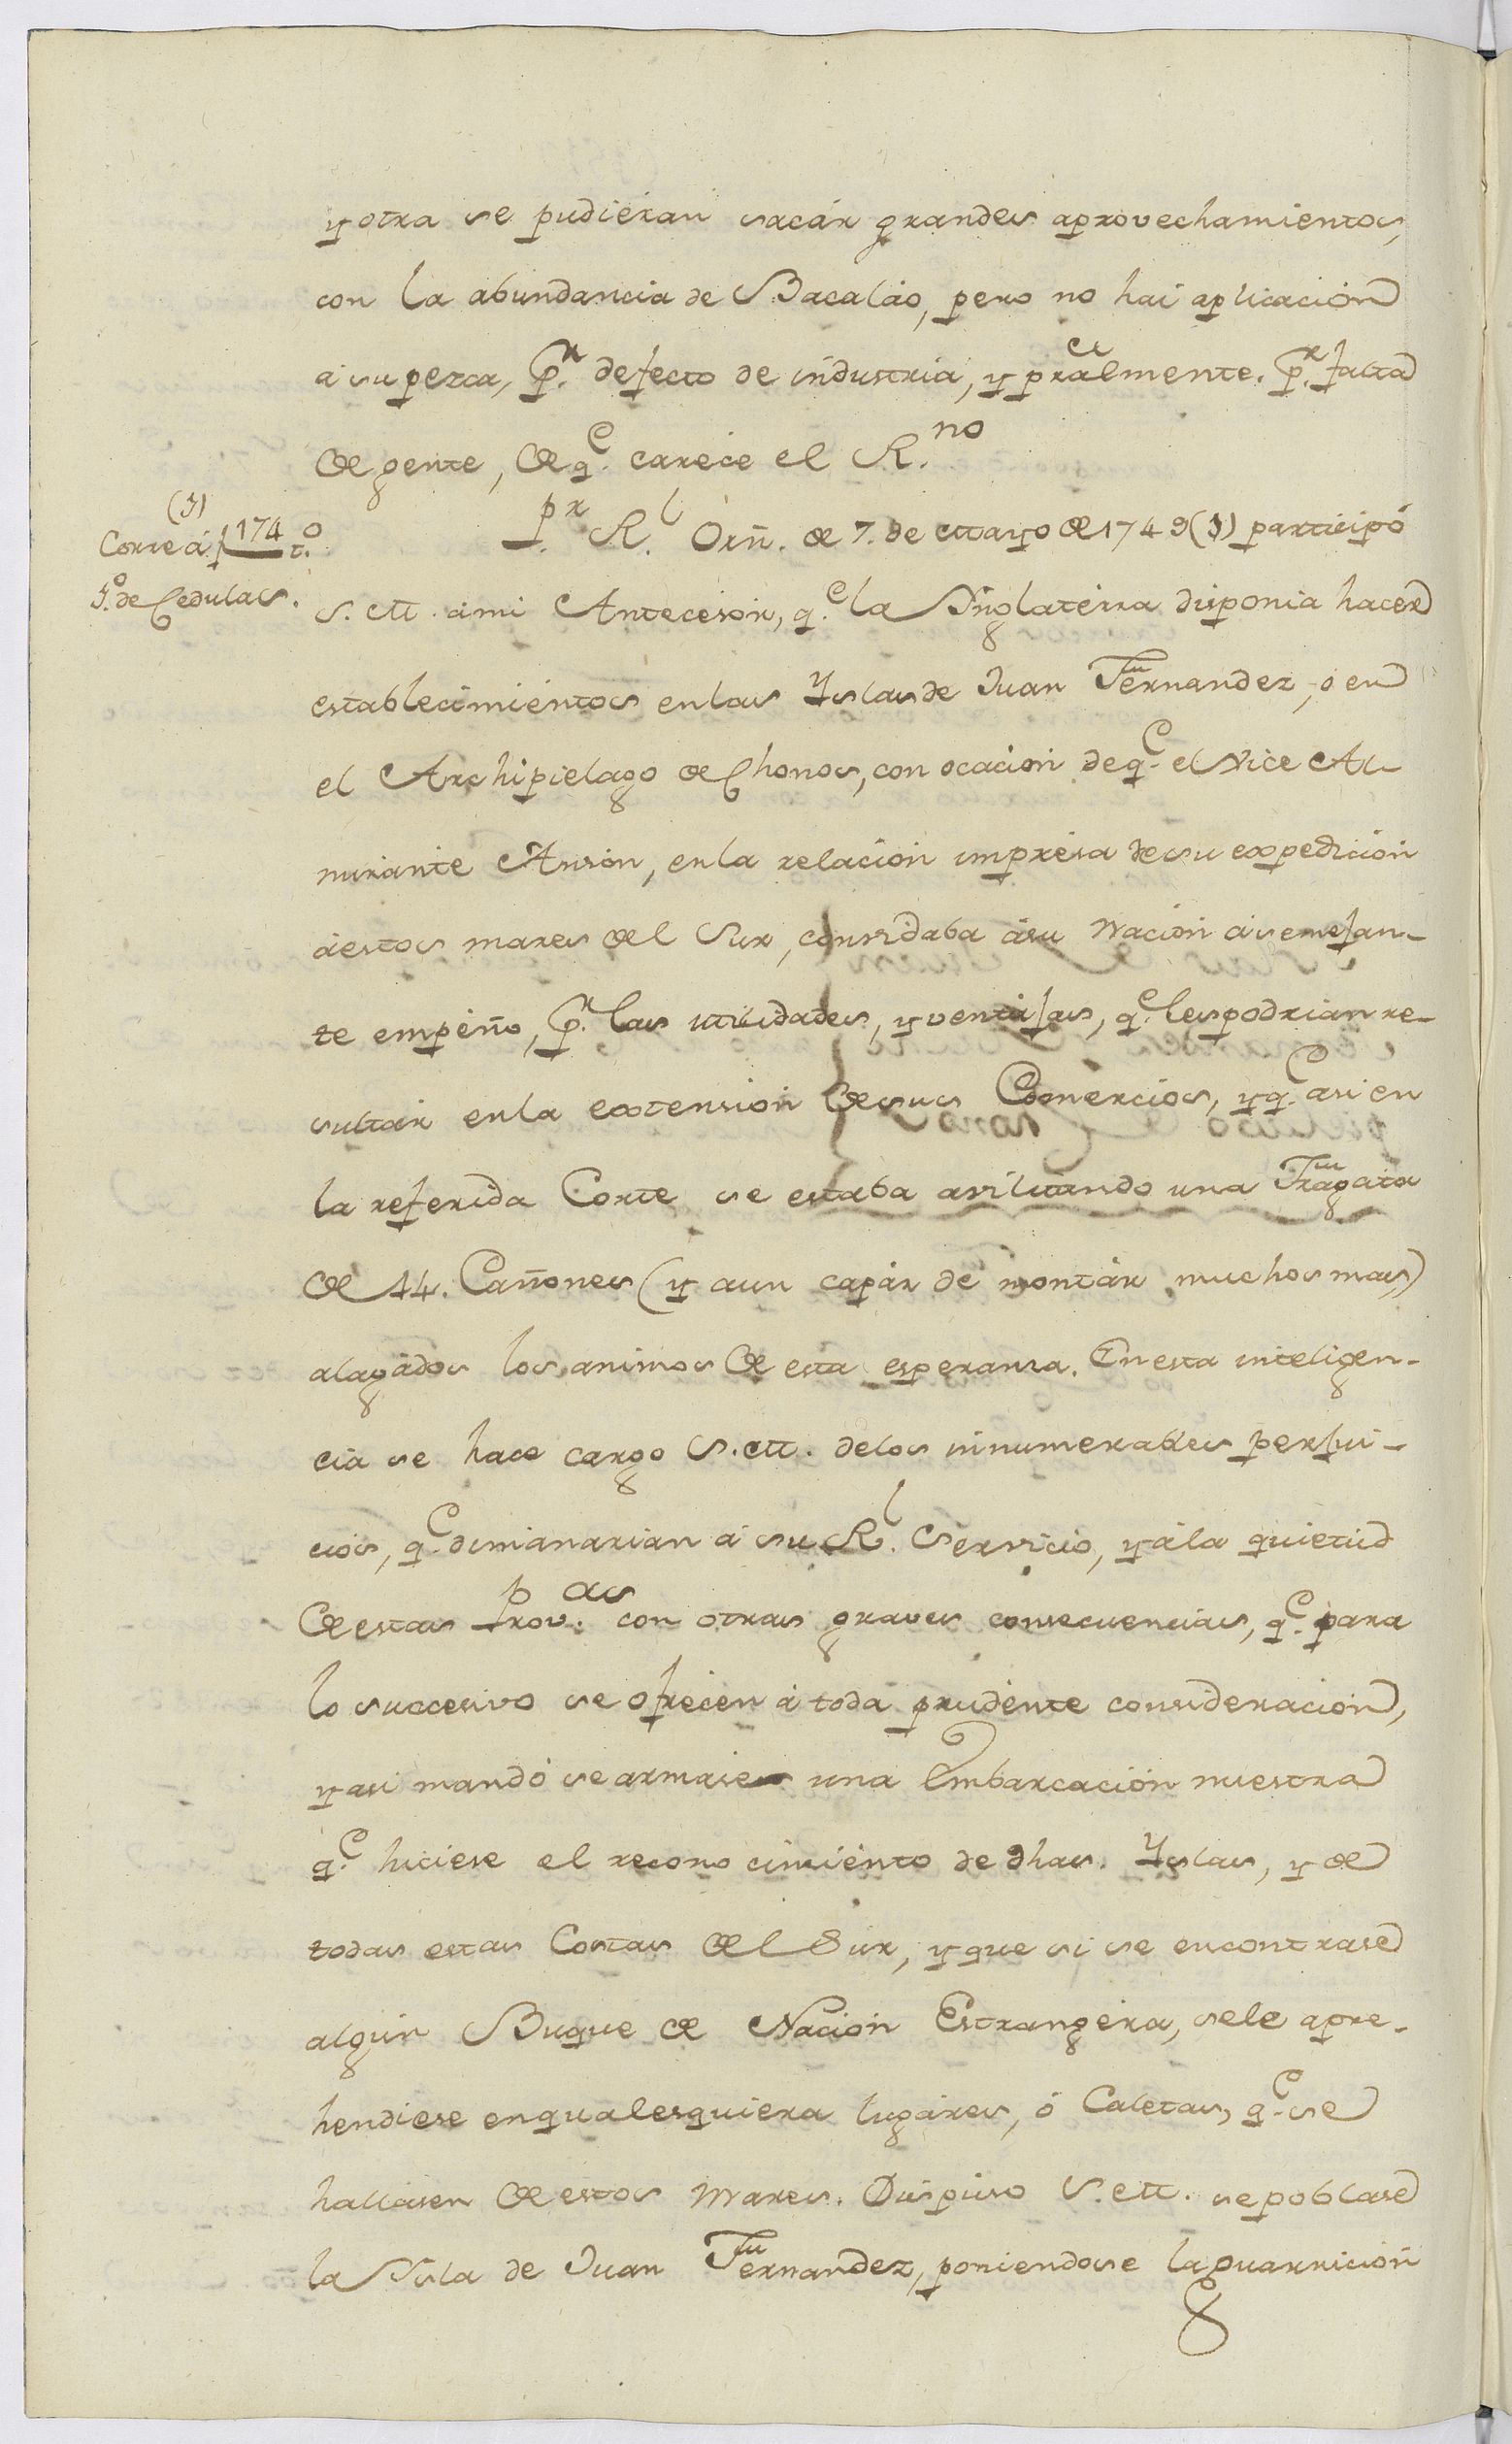 y otra se pudieran sacár grandes aprovechamientos,
con la abundancia de Bacaláo, pero no hai aplicacion
á su pezca, p.r defecto de industria, y pralmente. p.r falta
de gente, de q.e carece el R.no
(1)
Corre á f 174 t.o
1.o de Cedulas.
p.r R.l Orñ. de 7. de Mayo de 1749 (1) participó
S. M. á mi Antecesór, q.e la Ynglaterra disponia hacer
establecimientos en las Yslas de Juan Fernandez, ó en
el Archipielago de Chonos, con ocacion de q.e el Vice Al-
mirante Ansón, en la relacion impresa de su expedicion
á estos mares del Sur, convidaba á su Nacion á semejan-
te empeño, p.r las utilidades, y ventajas, q.e les podrian re-
sultár en la extension de sus Comercios, y q.e asi en
la referida Corte se estaba avilitando una Fragata
de 14. Cañones (y aun capáz de montár muchos mas)
alagádos los animos de esta esperansa. En esta inteligen-
cia se hace cargo S. M. de los innumerables perjui-
cios, q.e dimanarian á su R.l Servicio, y á la quietud
de estas Prov.as con otras graves consecuencias, q.e para
lo succesivo se ofrecen á toda prudente consideracion,
y asi mandó se armase una Embarcación nuestra
q.e hiciese el reconocimiento de dhas. Yslas, y de
todas estas Costas del Sur, y que si se encontrase
algun Buque de Nacion Estrangera, se le apre-
hendiese en qualesquiera lugáres, ó Caletas, q.e se
hallasen de estos Mares. Dispuso S. M. se poblase
la Ysla de Juan Fernandez, poniendose la guarnicion